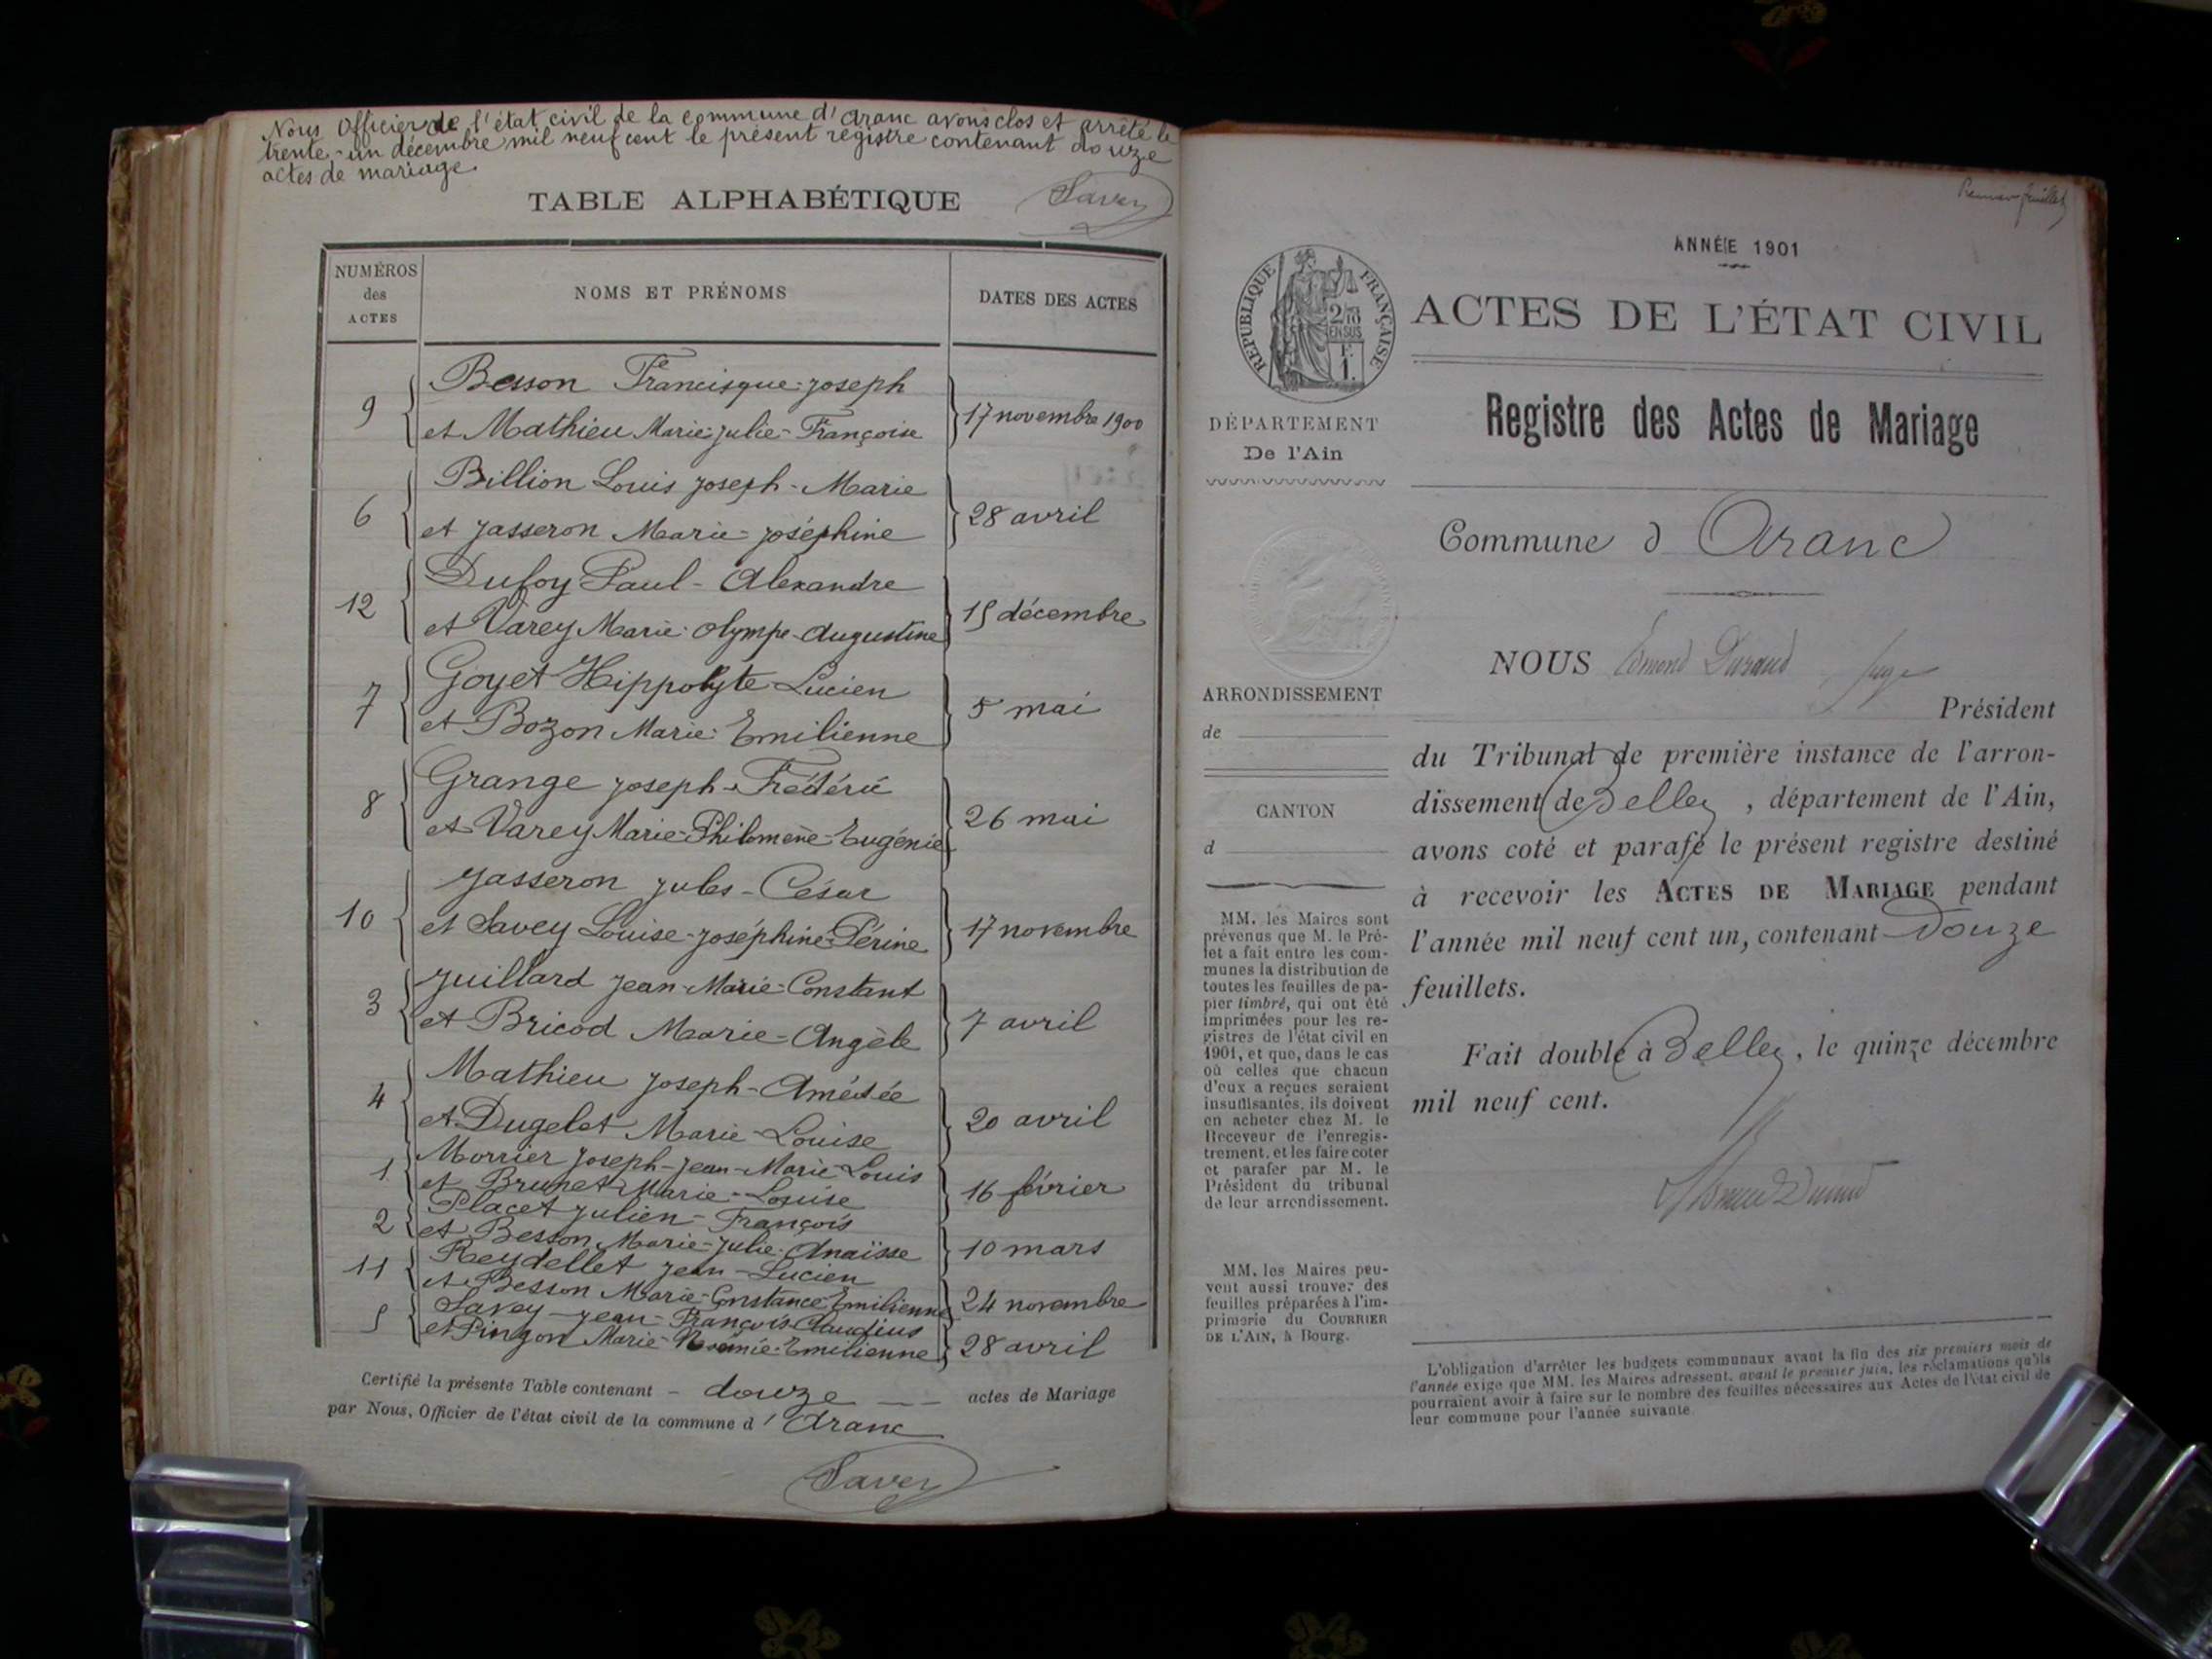 Nous Officier de l'état civil de la commune d'Aranc avons clos et arrêté le
trente-un décembre mil neuf cent le présent régistre contenant douze
actes de mariage.
TABLE ALPHABÉTIQUE
Savey
NUMÉROS des ACTES
NOMS ET PRÉNOMS
DATES DES ACTES
9
Besson Francisque-Joseph
et Mathieu Marie-Julie-Françoise
17 novembre 1900
6
Billion Louis Joseph-Marie
et Jasseron Marie-Joséphine
28 avril
12
Dufoy Paul-Alexandre
et Varey Marie-Olympe-Augustine
15 décembre
7
Goyet Hippolyte Lucien
et Bozon Marie-Emilienne
5 mai
8
Grange Joseph-Frédéric
et Varey Marie-Philomène-Eugénie
26 mai
10
Jasseron Jules-César
et Savey Louise-Joséphine-Périne
17 novembre
3
Juillard Jean-Marie-Constant
et Bricod Marie-Angèle
7 avril
4
Mathieu Joseph-Amédée
et Dugelet Marie-Louise
20 avril
1
Morrier Joseph-Jean-Marie-Louis
et Brunet Marie-Louise
16 février
2
Placet Julien-François
et Besson Marie-Julie-Anaïsse
10 mars
11
Reydellet Jean-Lucien
et Besson Marie-Constance-Emilienne
24 novembre
5
Savey Jean-François-Claudius
et Pinzon Marie-Noémie-Emilienne
28 avril
Certifié la présente Table contenant - douze actes de Mariage
par Nous, Officier de l'état civil de la commune d'Aranc
Savey
Premier feuillet
ANNÉE 1901
RÉPUBLIQUE FRANÇAISE
2/10 EN SUS
F. 1.
ACTES DE L'ÉTAT CIVIL
Registre des Actes de Mariage
DÉPARTEMENT
De l'Ain
Commune d Aranc
NOUS Edmond Durand Juge
Président
du Tribunal de première instance de l'arron-
dissement de Belley, département de l'Ain,
avons coté et parafé le présent registre destiné
à recevoir les ACTES DE MARIAGE pendant
l'année mil neuf cent un, contenant Douze
feuillets.
Fait double à Belley, le quinze décembre
mil neuf cent.
Edmond Durand
ARRONDISSEMENT
de
CANTON
d
MM. les Maires sont
prévenus que M. le Pré-
fet a fait entre les com-
munes la distribution de
toutes les feuilles de pa-
pier timbré, qui ont été
imprimées pour les re-
gistres de l'état civil en
1901, et que, dans le cas
où celles que chacun
d'eux a reçues seraient
insuffisantes, ils doivent
en acheter chez M. le
Receveur de l'enregis-
trement, et les faire coter
et parafer par M. le
Président du tribunal
de leur arrondissement.
MM. les Maires peu-
vent aussi trouver des
feuilles préparées à l'im-
primerie du COURRIER
DE L'AIN, à Bourg.
L'obligation d'arrêter les budgets communaux avant la fin des six premiers mois de
l'année exige que MM. les Maires adressent, avant le premier juin, les réclamations qu'ils
pourraient avoir à faire sur le nombre des feuilles nécessaires aux Actes de l'état civil de
leur commune pour l'année suivante.